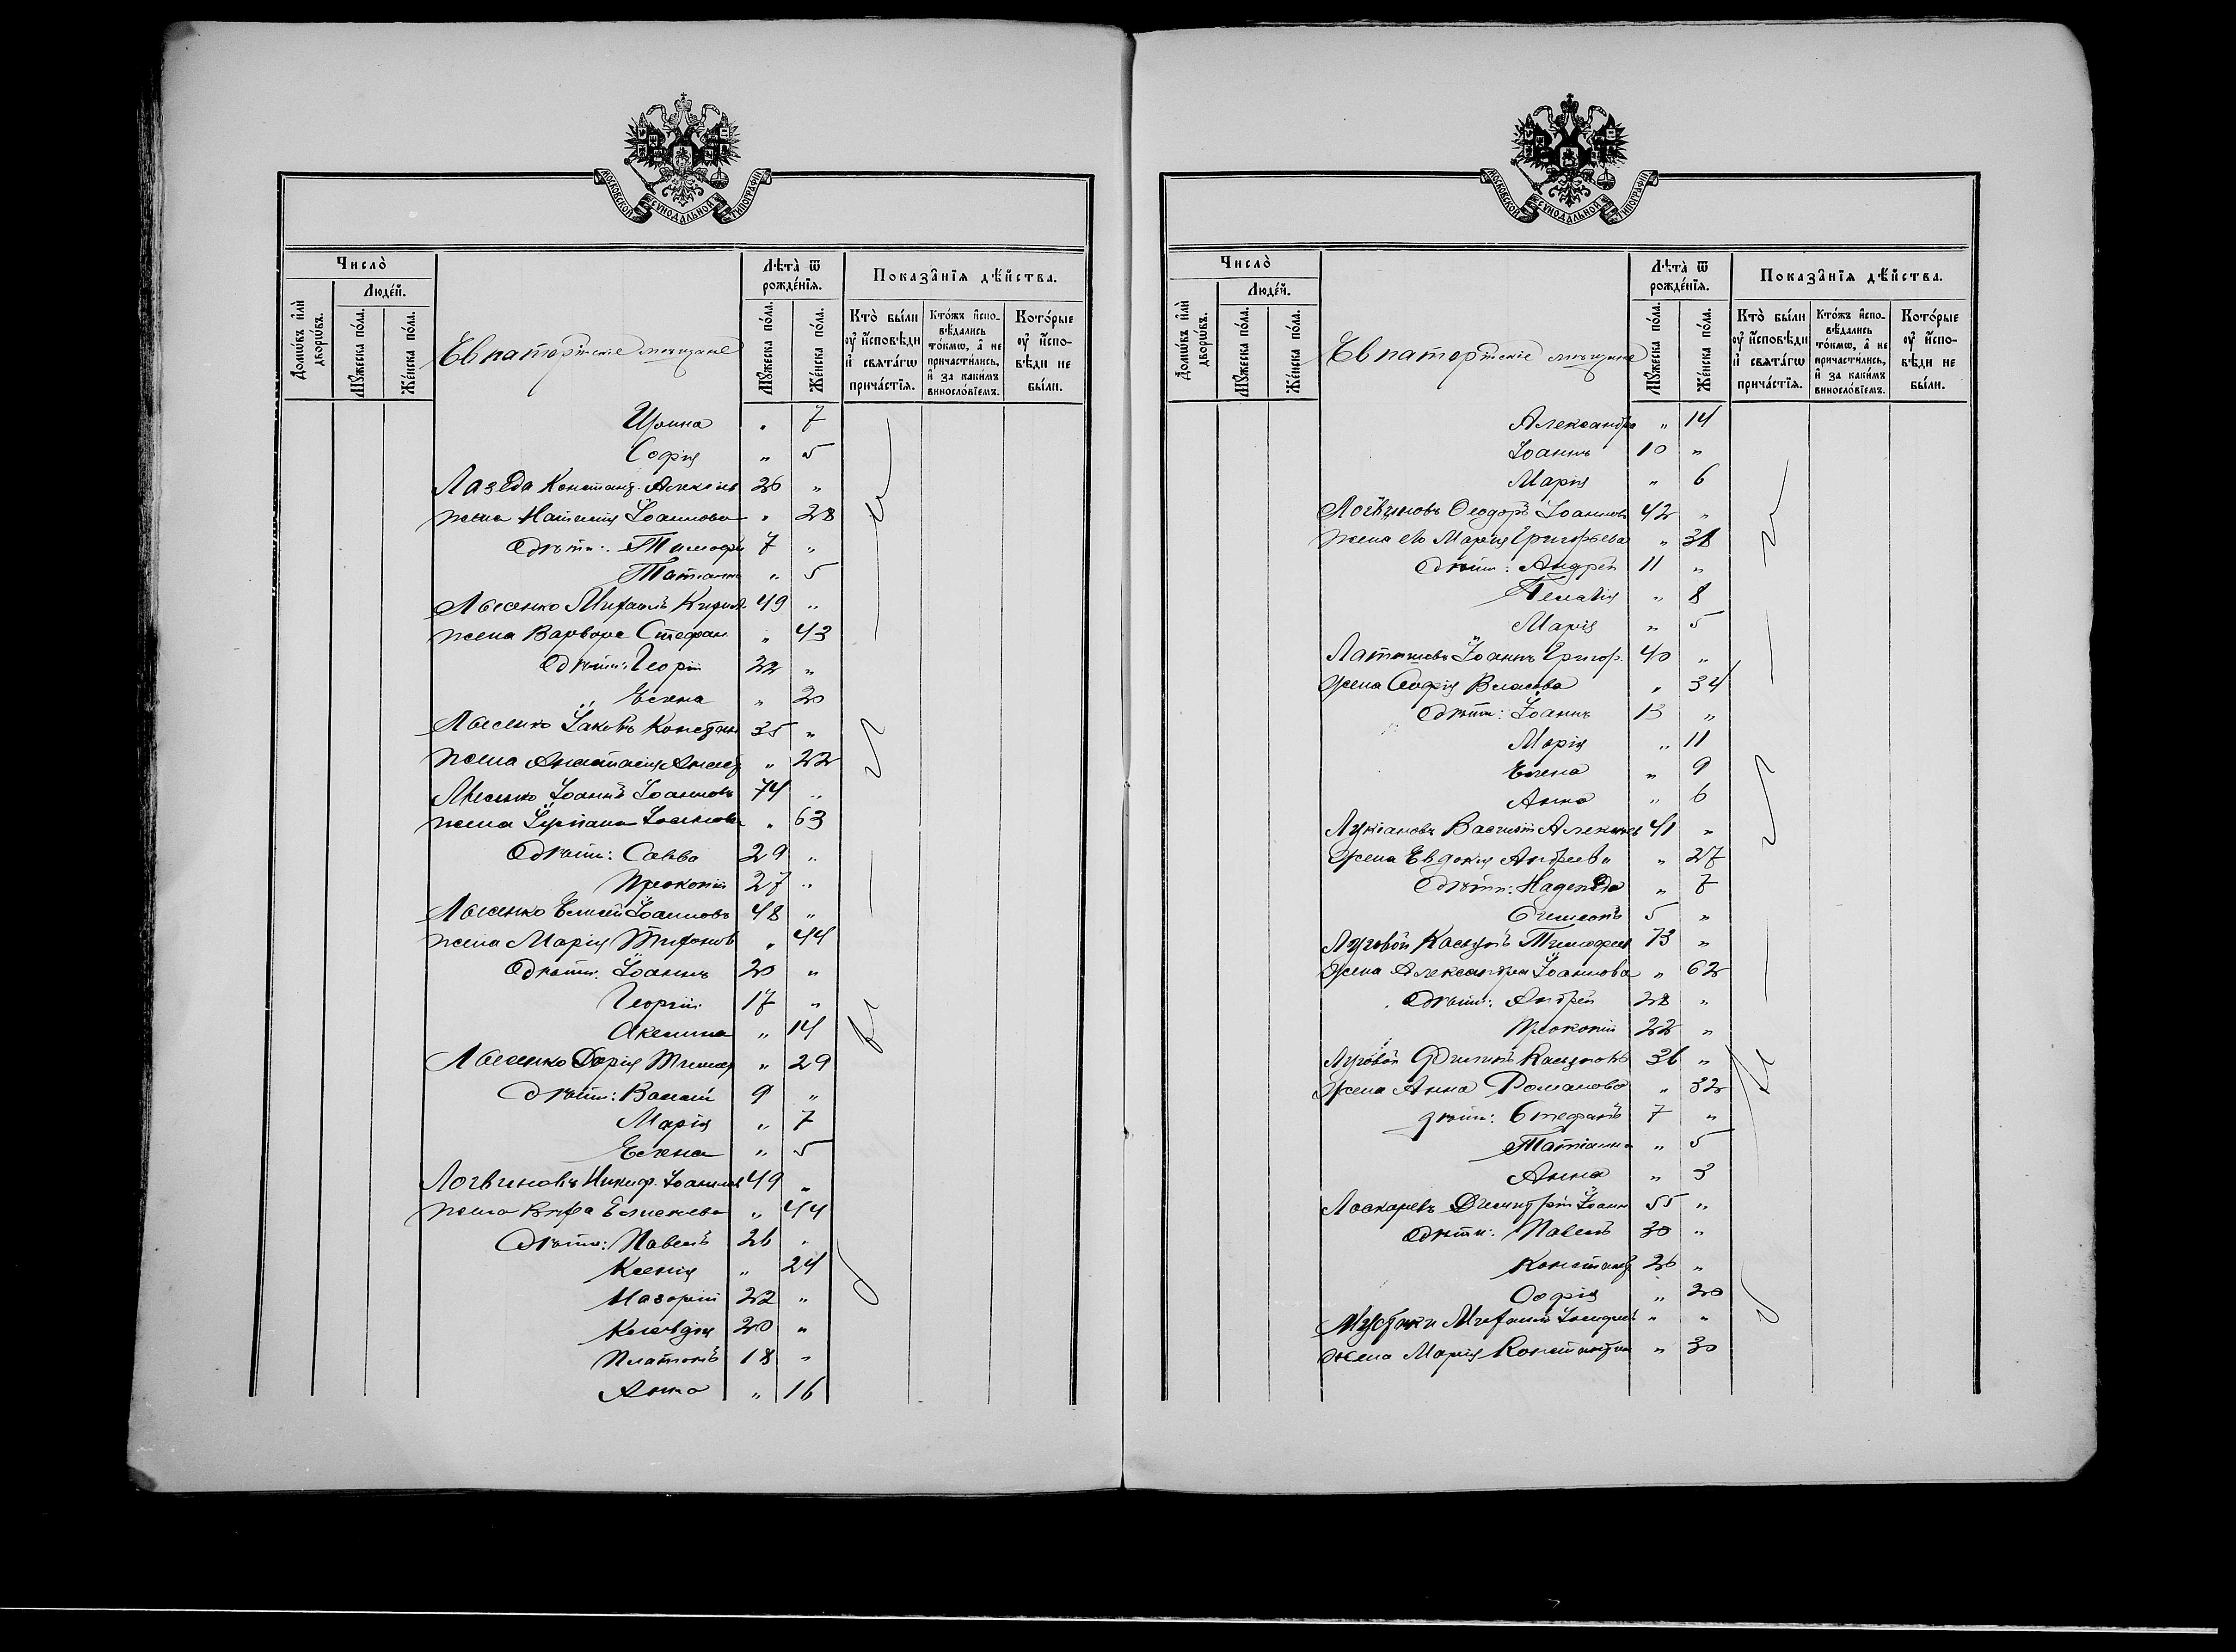 МОСКОВСКОЙ СѴНОДАЛЬНОЙ ТИПОГРАФІИ
Число̀
Людей.
Домѡвъ и҆лѝ дворѡ́въ.
Мꙋ́жеска по́ла.
Же́нска по́ла.
Евпаторскіе мѣщане
Лѣта̀ ѿ рожде́нїѧ.
Мꙋ́жеска по́ла.
Же́нска по́ла.
Показа̑нїѧ дѣ́йства.
Кто̀ бы́ли оу҆ и҆́сповѣди и҆ свѧта́гѡ прича́стїѧ.
Кто́жъ и҆спо-
вѣ́дались
то́кмѡ, а҆ не
причасти́лись,
и҆ за каки́мъ
винослⷪ҇вїемъ.
Кото́рые оу҆ и҆́спо-
вѣди не
бы́ли.
Ирина " 7
Софія " 5
Лазеба Констант. Алексѣев 36 "
жена Наталія Іоаннова " 28
Дѣти: Тимофей 7 "
Татіанна " 5
Лысенко Михаилъ Кирил. 49 "
жена Варвара Стефан. " 43
Дѣти: Георгій 22 "
Елена " 20
Лысенко Іаковъ Констан 35 "
жена Анастасія " 22
Лысенко Іоаннъ Іоанновъ 74 "
жена Іуліана " 63
Дѣти: Савва 29 "
Прокопій 27 "
Лысенко Елисей Іоанновъ 48 "
жена Марія Тихонов " 44
Дѣти: Іоаннъ 20 "
Георгій 17 "
Акилина " 14
Лысенко Дарія " 29
Дѣти: Василій 9 "
Марія " 7
Елена " 5
Логвиновъ Никиф. Іоаннов 49 "
жена Вѣра Елисеева " 44
Дѣти: Павелъ 26 "
Ксенія " 24
Назарій 22 "
Клавдія 20 "
Платонъ 18 "
Анна " 16
МОСКОВСКОЙ СѴНОДАЛЬНОЙ ТИПОГРАФІИ
Число̀
Людей.
Домѡвъ и҆лѝ дворѡ́въ.
Мꙋ́жеска по́ла.
Же́нска по́ла.
Евпаторскіе мѣщане
Лѣта̀ ѿ рожде́нїѧ.
Мꙋ́жеска по́ла.
Же́нска по́ла.
Показа̑нїѧ дѣ́йства.
Кто̀ бы́ли оу҆ и҆́сповѣди и҆ свѧта́гѡ прича́стїѧ.
Кто́жъ и҆споведались то́кмѡ, а҆ не причасти́лись, и҆ за каки́мъ винословїемъ.
Кото́рые оу҆ и҆́сповѣди не бы́ли.
Александра " 14
Іоаннъ 10 "
Марія " 6
Логвиновъ Ѳеодоръ Іоаннов 42 "
жена его Марія Григорьева " 38
Дѣти: Андрей 11 "
Пелагія " 8
Марія " 5
Латышевъ Іоаннъ Григор. 40 "
Жена Софія Власова " 34
Дѣти: Іоаннъ 13 "
Марія " 11
Елена " 9
Анна " 6
Лукіановъ Василій Алексеев 41 "
Жена Евдокія Андреева " 27
Дѣти: Надежда " 7
Симеонъ 5 "
Луговой Тимофеев 73 "
Жена Александра Іоаннова " 62
Дѣти: Андрей 28 "
Прокопій 22 "
Луговой Филиппъ 36 "
Жена Анна Романова " 32
дѣти: Стефанъ 7 "
Татіанна " 5
Анна " 3
Лоскаревъ Димитрій Іоанн 55 "
Дѣти: Павелъ 30 "
Констант 26 "
Софія " 20
Мустаки Михаилъ " "
Жена Марія Константин " 30